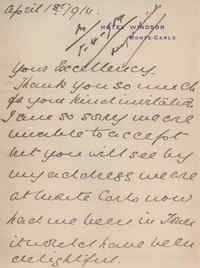 April 12th/914.
HOTEL WINDSOR
MONTE-CARLO
Your Excellency
Thank you so much
for your kind invitation
I am so sorry we are
unable to accept
but you will see by
my address we are
at Monte Carlo now
had we been in
it would have been
delightful.